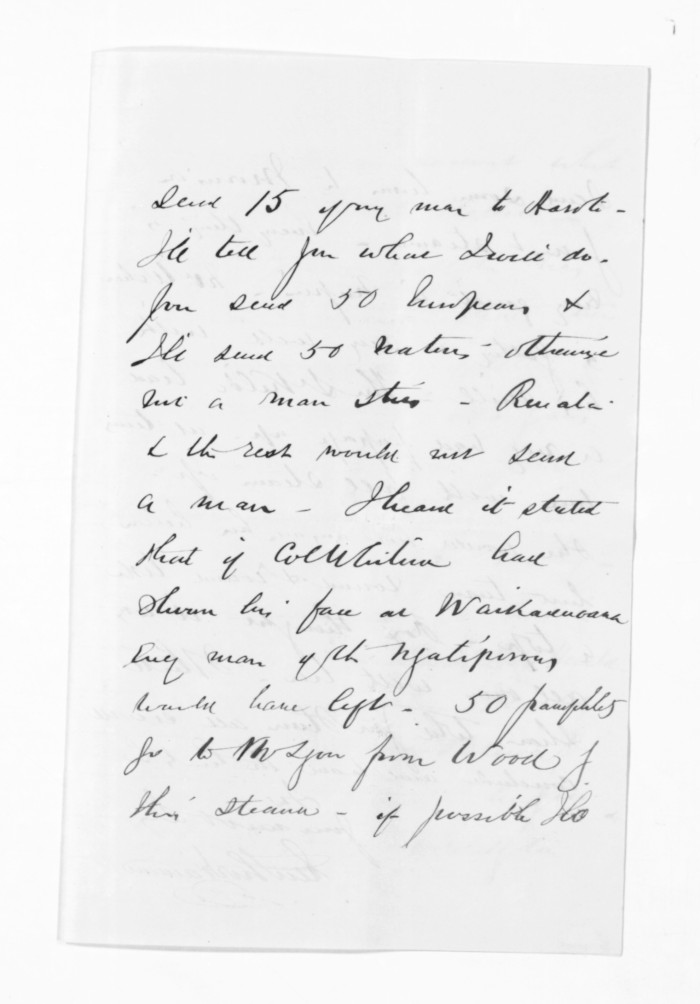 send 15 of my men to Hawke -
I'll tell you what I will do.
you send 50 Europeans &
I'll send 50 Natives otherwise
not a man stirs - Renata
& the rest would not send
a man - I heard it stated
that if Col Whitmore had
shewn his face at Waikaremoana
every man of the Ngatiporous
would have left - 50 pamphlets
go to McLyon from Wood by
this steamer - if possible I'll